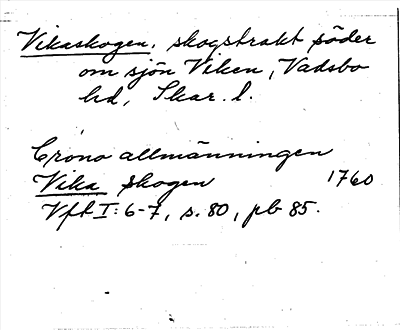 Vikaskogen, skogstrakt söder
om sjön Viken, Vadsbo
hd, Skar. l.
Crono allmänningen
Vika skogen 1760
Vft I: 6-7, s. 80, pb 85.